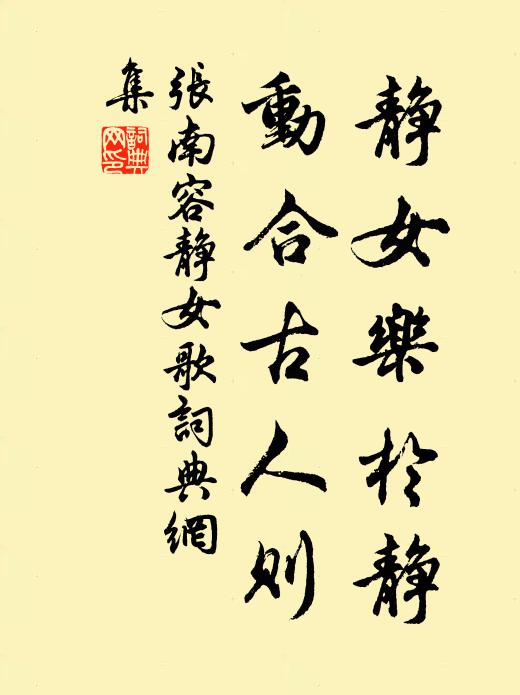 靜女樂於靜
動合古人則
張南容靜女歌詞典網
集
詞典
网印